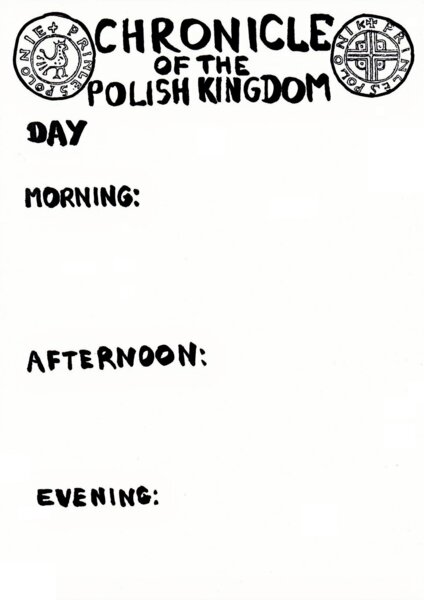 PRINCES POLONIE
CHRONICLE
OF THE
POLISH KINGDOM
PRINCES POLONIE
DAY
MORNING:
AFTERNOON:
EVENING: